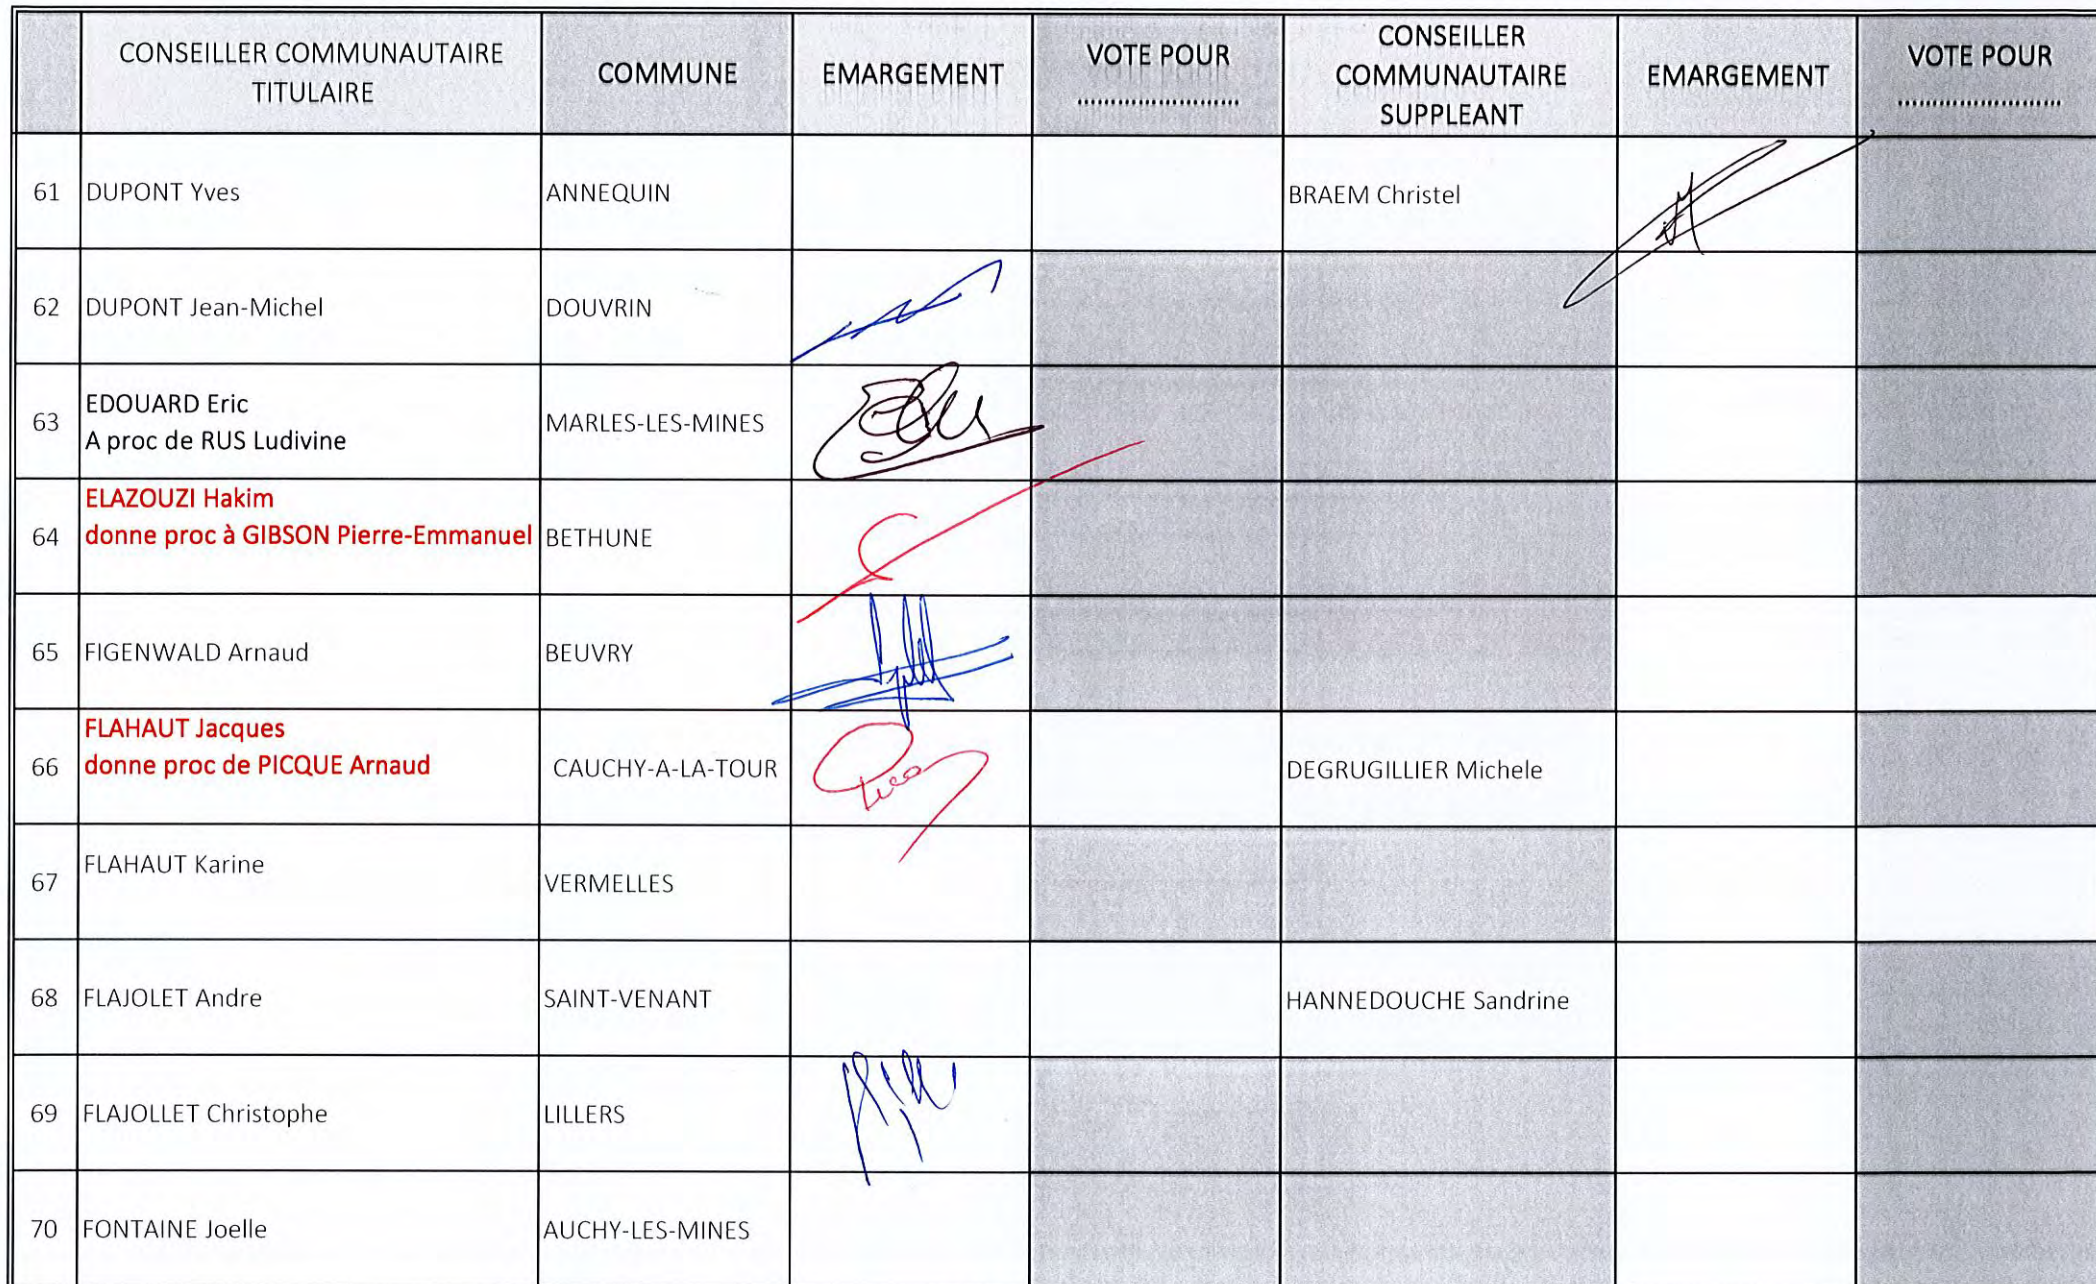 CONSEILLER COMMUNAUTAIRE
TITULAIRE
COMMUNE
EMARGEMENT
VOTE POUR
........................
CONSEILLER
COMMUNAUTAIRE
SUPPLEANT
EMARGEMENT
VOTE POUR
........................
61 DUPONT Yves ANNEQUIN BRAEM Christel
62 DUPONT Jean-Michel DOUVRIN
63 EDOUARD Eric
A proc de RUS Ludivine
MARLES-LES-MINES
64 ELAZOUZI Hakim
donne proc à GIBSON Pierre-Emmanuel
BETHUNE
65 FIGENWALD Arnaud BEUVRY
66 FLAHAUT Jacques
donne proc de PICQUE Arnaud
CAUCHY-A-LA-TOUR DEGRUGILLIER Michele
67 FLAHAUT Karine VERMELLES
68 FLAJOLET Andre SAINT-VENANT HANNEDOUCHE Sandrine
69 FLAJOLLET Christophe LILLERS
70 FONTAINE Joelle AUCHY-LES-MINES